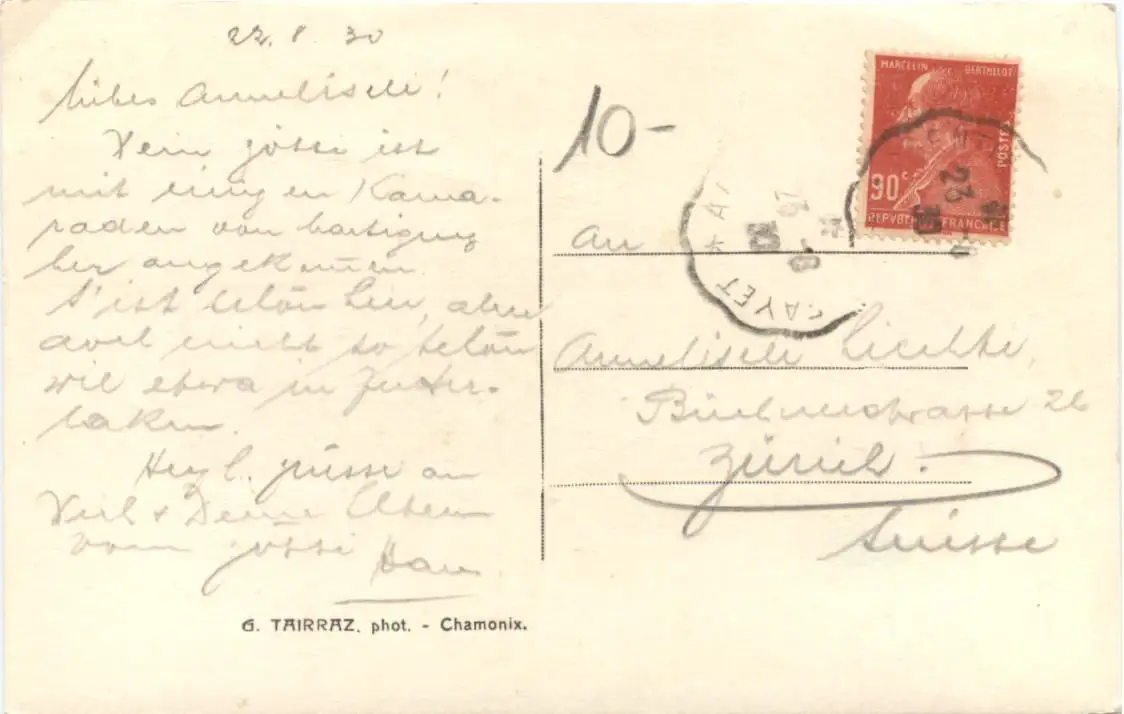 22. 8. 30
Liebes Anneliseli!
Dein Götti ist
mit einigen Kama-
raden von
her angekommen.
S'ist schön hier, aber
doch nicht so schön
wie etwa in Inter-
laken.
Herzl. Grüsse an
Dich + Deine Eltern
vom Götti Hans
G. TAIRRAZ, phot. - Chamonix.
10-
MARCELIN BERTHELOT
POSTES
90 c
REPUBLIQUE FRANCAISE
23
30
FAYET
An
Anneliseli
26
Zürich.
Suisse